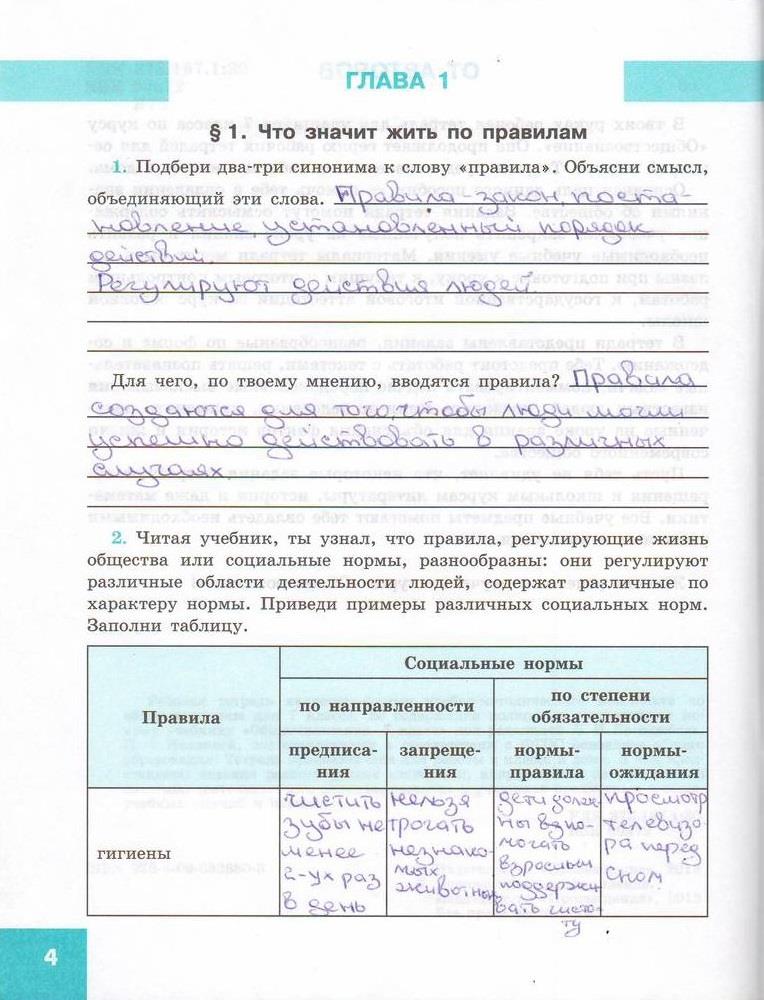 ГЛАВА 1
§ 1. Что значит жить по правилам
1. Подбери два-три синонима к слову «правила». Объясни смысл,
объединяющий эти слова. Правила-закон, поста-
новление, установленный порядок
действий.
Регулируют действия людей
Для чего, по твоему мнению, вводятся правила? Правила
создаются для того, чтобы люди могли
успешно действовать в различных
случаях.
2. Читая учебник, ты узнал, что правила, регулирующие жизнь
общества или социальные нормы, разнообразны: они регулируют
различные области деятельности людей, содержат различные по
характеру нормы. Приведи примеры различных социальных норм.
Заполни таблицу.
Правила
Социальные нормы
по направленности
по степени
обязательности
предписа-
ния
запреще-
ния
нормы-
правила
нормы-
ожидания
гигиены
чистить
зубы не
менее
2-ух раз
в день
нельзя
трогать
незнако-
мых
животных
дети долж-
ны взпо-
могать
взрослым
поддержи
вать чисто-
ту
просмотр
телевизо-
ра перед
сном
4